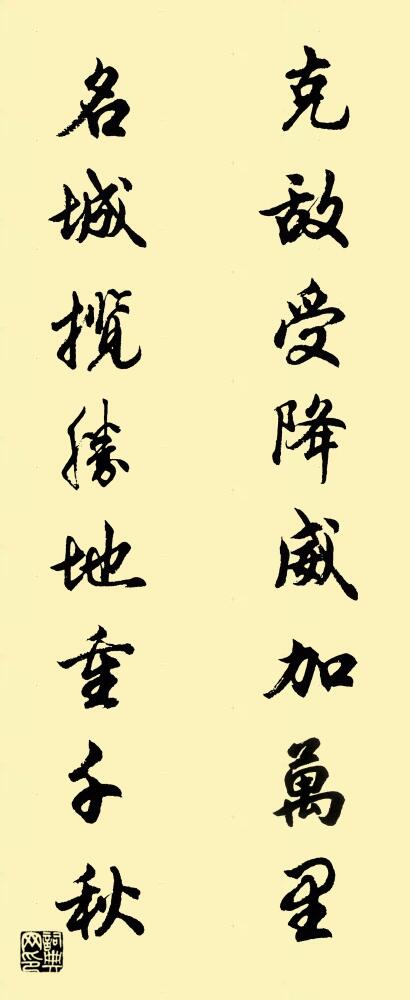 克敌受降威加萬里
名城揽勝地重千秋
詞典网印